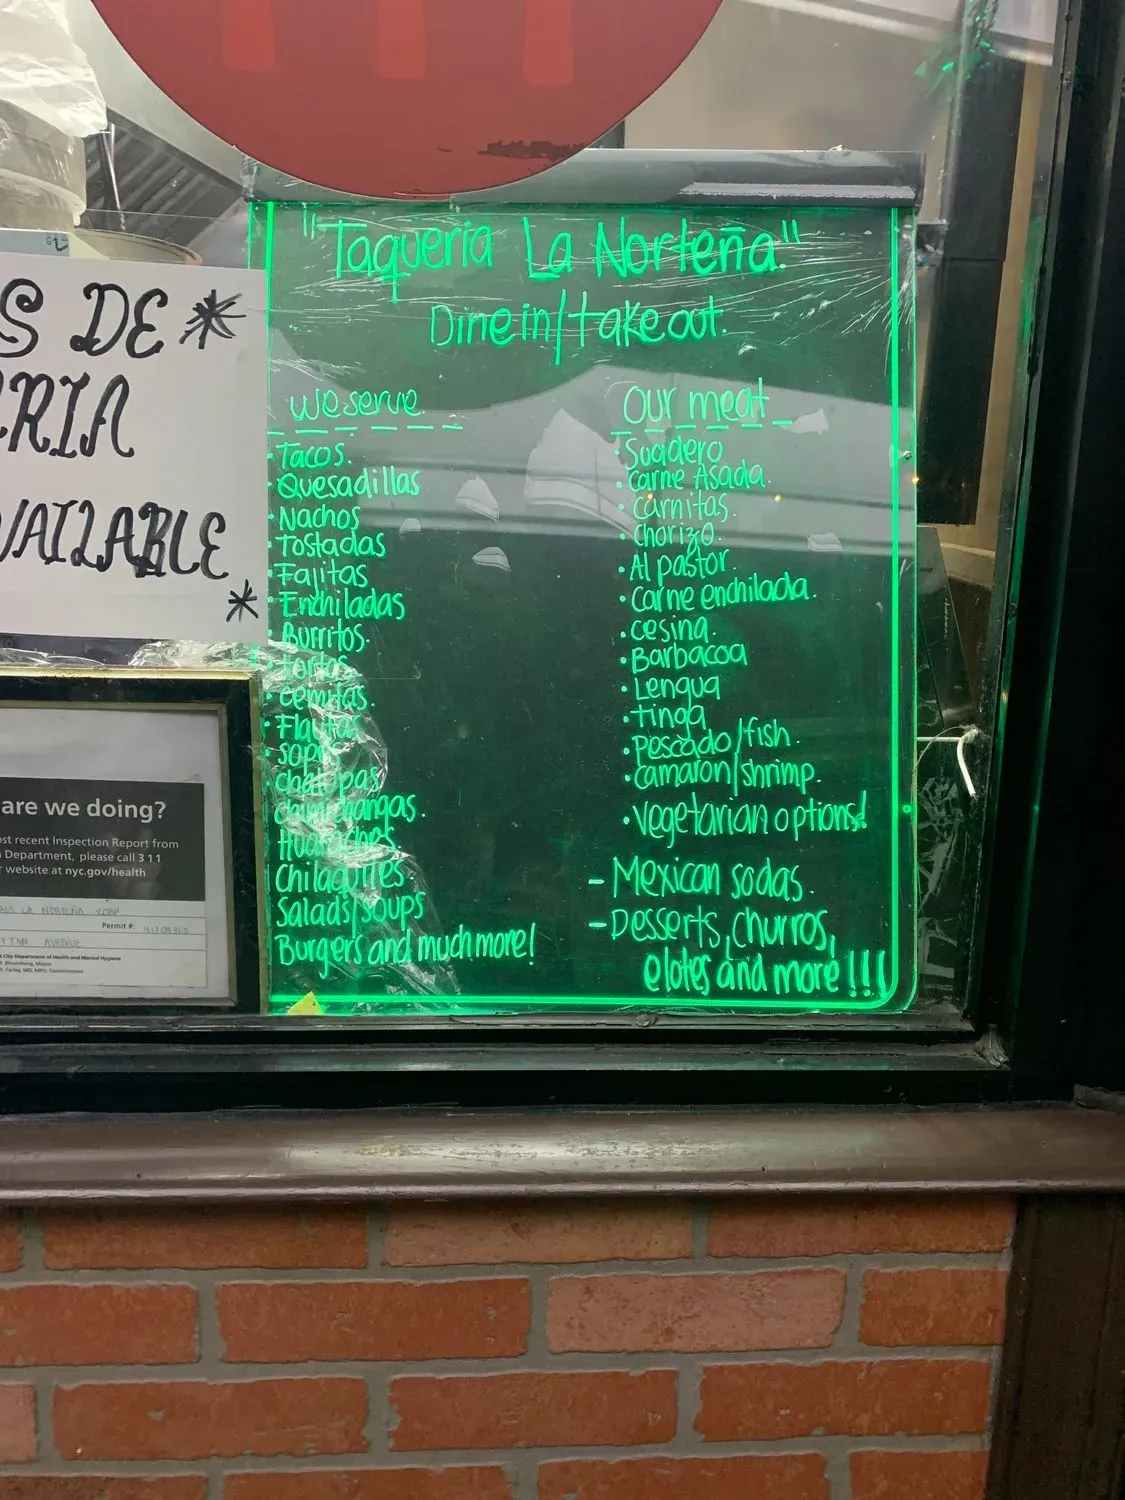 "Taqueria La Norteña"
Dine in/take out.
we serve.
• Tacos.
• Quesadillas
• Nachos
• Tostadas
• Fajitas
• Enchiladas
• Burritos.
• tortas
• cemitas.
• Flautas
• sopes
chalupas
chimichangas.
Huaraches.
Chilaquiles.
Salads/soups
Burgers and much more!
our meat
• Suadero
• carne Asada.
• carnitas.
• chorizo.
• Al pastor.
• carne enchilada.
• cesina.
• Barbacoa
• Lengua
• tinga
• Pescado/fish.
• camaron/shrimp.
• vegetarian options!
- Mexican sodas.
- Desserts, churros,
elotes and more!!!
S DE *
RIA
VAILABLE
*
are we doing?
ost recent Inspection Report from
Department, please call 311
website at nyc.gov/health
LA NORTEÑA CORP
Permit #:
TTAN AVENUE
City Department of Health and Mental Hygiene
Bloomberg, Mayor
Farley, MD, MPH, Commissioner